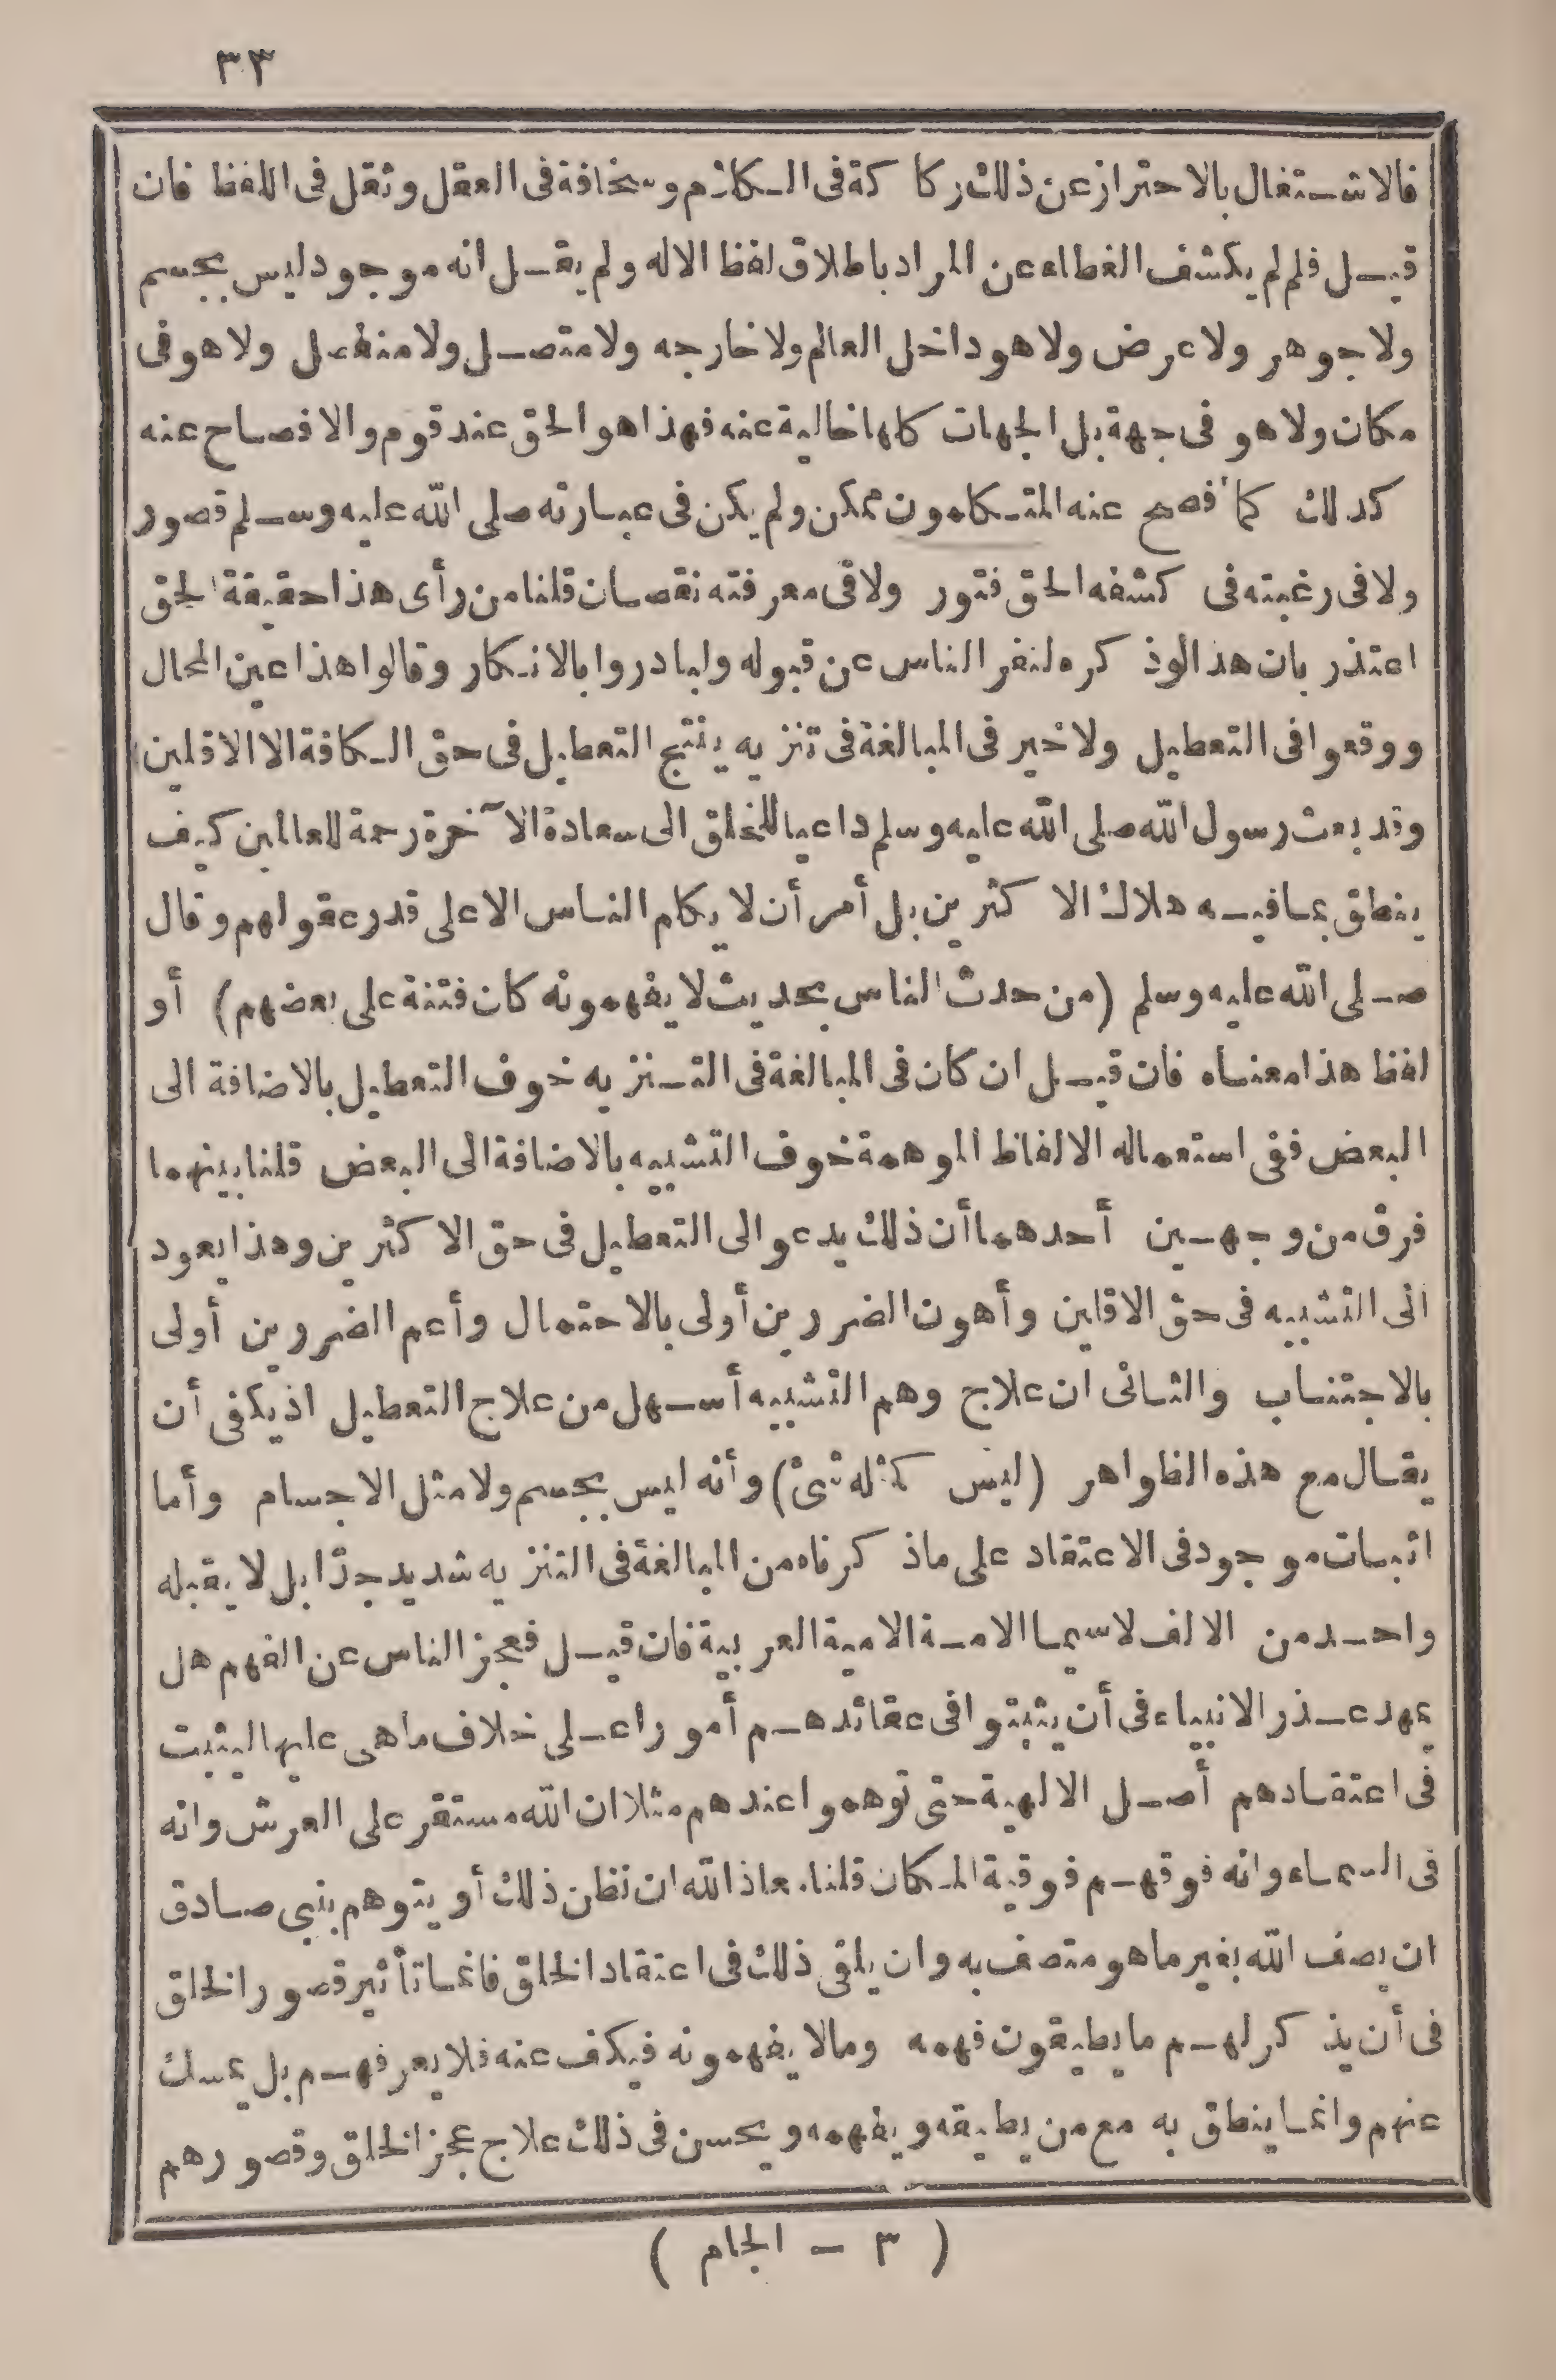 ٣٣
فالاشتغال بالاحتراز عن ذلك ركاكة فى الكلام وسخافة فى العقل وثقل فى اللفظ فان
قيل فلم لم يكشف الغطاء عن المراد باطلاق لفظ الاله ولم يقل انه موجود ليس بجسم
ولا جوهر ولا عرض ولا هو داخل العالم ولا خارجه ولا متصل ولا منفصل ولا هو فى
مكان ولا هو فى جهة بل الجهات كلها خالية عنه فهذا هو الحق عند قوم والافصاح عنه
كذلك كما أفصح عنه المتكلمون ممكن ولم يكن فى عبارته صلى الله عليه وسلم قصور
ولا فى رغبته فى كشفه الحق فتور ولا فى معرفته نقصان قلنا من رأى هذا حقيقة الحق
اعتذر بان هذا لو ذكره لنفر الناس عن قبوله ولبادروا بالانكار وقالوا هذا عين المحال
ووقعوا فى التعطيل ولا خير فى المبالغة فى تنزيه ينتج التعطيل فى حق الكافة الا الاقلين
وقد بعث رسول الله صلى الله عليه وسلم داعيا للخلق الى سعادة الآخرة رحمة للعالمين كيف
ينطق بما فيه هلاك الاكثرين بل أمر أن لا يكلم الناس الا على قدر عقولهم وقال
صلى الله عليه وسلم (من حدث الناس بحديث لا يفهمونه كان فتنة على بعضهم) أو
لفظ هذا معناه فان قيل ان كان فى المبالغة فى التنزيه خوف التعطيل بالاضافة الى
البعض ففى استعماله الالفاظ الموهمة خوف التشبيه بالاضافة الى البعض قلنا بينهما
فرق من وجهين أحدهما أن ذلك يدعو الى التعطيل فى حق الاكثرين وهذا يعود
الى التشبيه فى حق الاقلين وأهون الضررين أولى بالاحتمال وأعم الضررين أولى
بالاجتناب والثانى ان علاج وهم التشبيه أسهل من علاج التعطيل اذ يكفى أن
يقال مع هذه الظواهر (ليس كمثله شئ) وأنه ليس بجسم ولا مثل الاجسام وأما
اثبات موجود فى الاعتقاد على ما ذكرناه من المبالغة فى التنزيه شديد جدّا بل لا يقبله
واحد من الالف لا سيما الامة الامية العربية فان قيل فعجز الناس عن الفهم هل
يمهد عذر الانبياء فى أن يثبتوا فى عقائدهم أمورا على خلاف ما هى عليها ليثبت
فى اعتقادهم أصل الالهية حتى توهموا عندهم مثلا ان الله مستقر على العرش وانه
فى السماء وانه فوقهم فوقية المكان قلنا معاذ الله ان نظن ذلك أو يتوهم بنبى صادق
ان يصف الله بغير ما هو متصف به وان يلقى ذلك فى اعتقاد الخلق فانما تأثير قصور الخلق
فى أن يذكر لهم ما يطيقون فهمه وما لا يفهمونه فيكف عنه فلا يعرفهم بل يمسك
عنهم وانما ينطق به مع من يطيقه ويفهمه ويحسن فى ذلك علاج عجز الخلق وقصورهم
( ٣ - الجام )